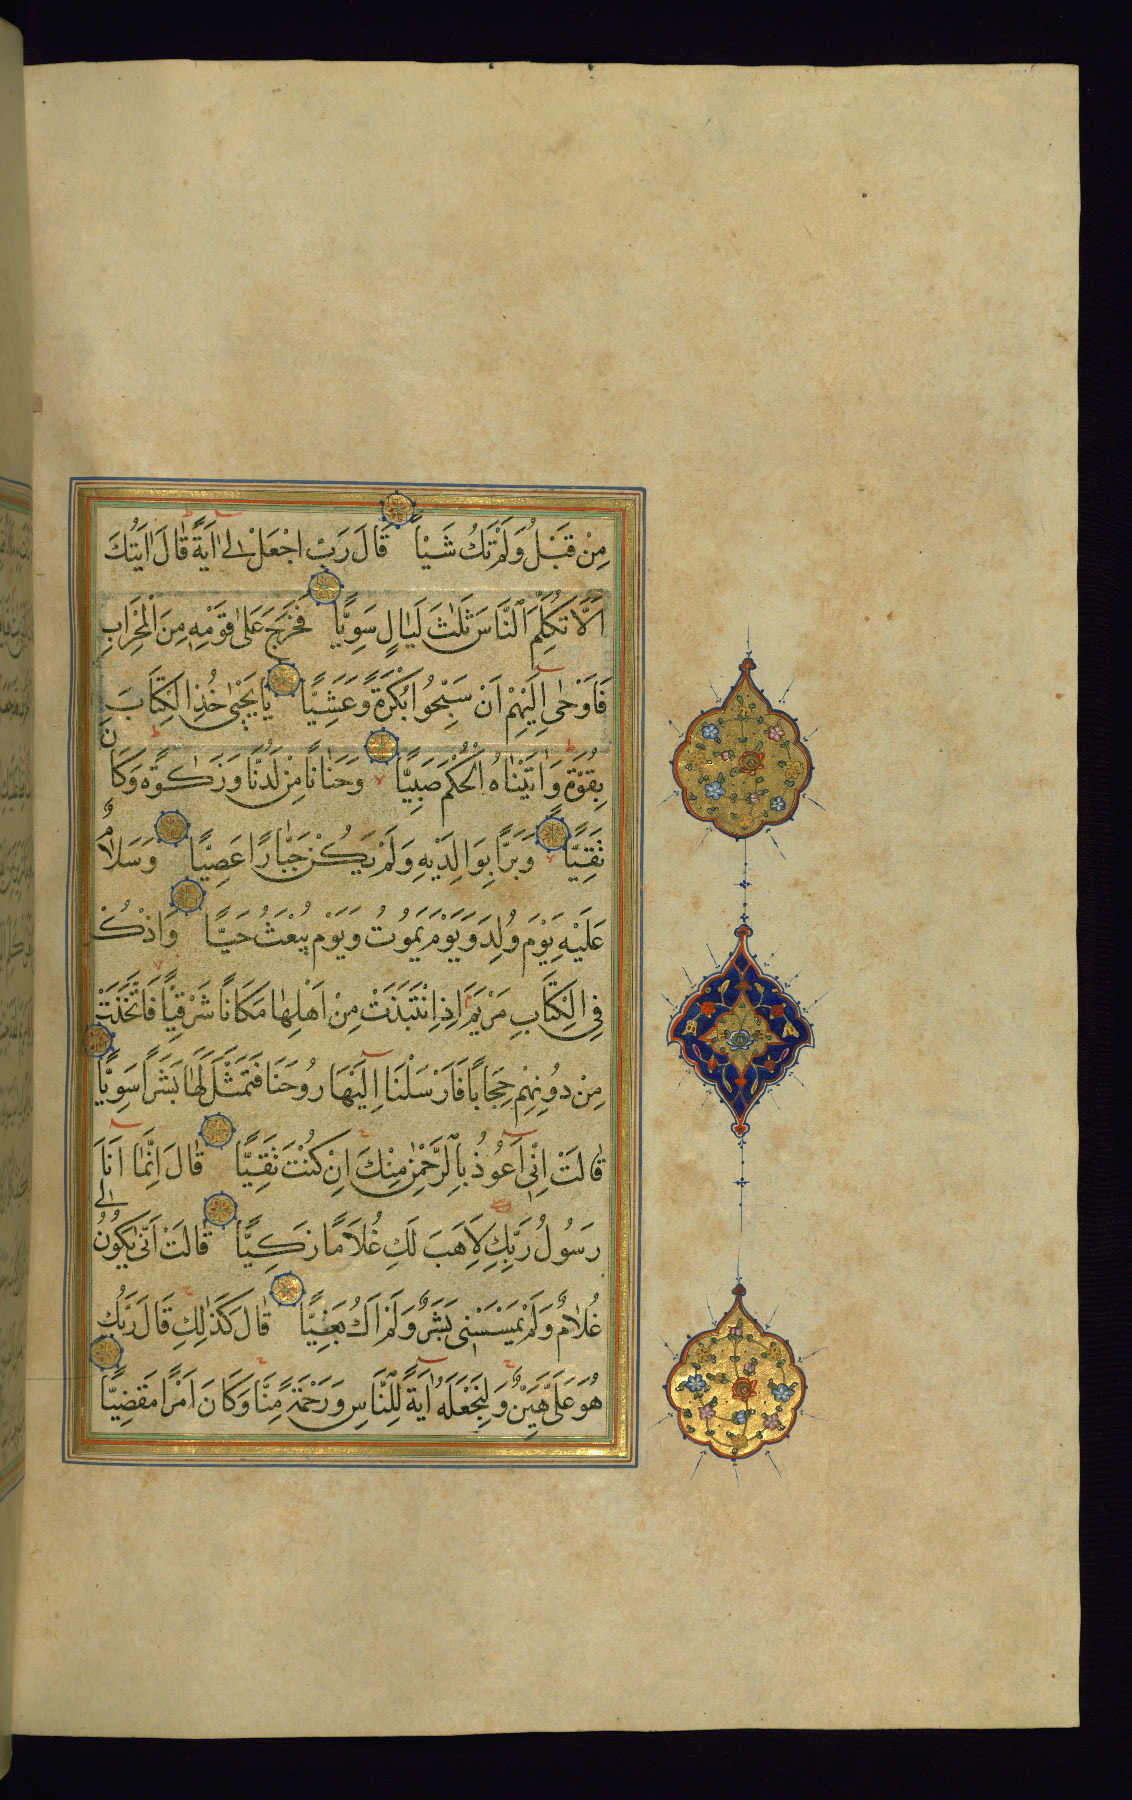 مِنْ قَبْلُ وَلَمْ تَكُ شَيْـًٔا قَالَ رَبِّ اجْعَلْ لٖى اٰيَةً قَالَ اٰيَتُكَ
اَلَّا تُكَلِّمَ النَّاسَ ثَلٰثَ لَيَالٍ سَوِيًّا فَخَرَجَ عَلٰى قَوْمِهٖ مِنَ الْمِحْرَابِ
فَاَوْحٰى اِلَيْهِمْ اَنْ سَبِّحُوا بُكْرَةً وَعَشِيًّا يَا يَحْيٰى خُذِ الْكِتَابَ
بِقُوَّةٍ وَاٰتَيْنَاهُ الْحُكْمَ صَبِيًّا وَحَنَانًا مِنْ لَدُنَّا وَزَكٰوةً وَكَانَ
تَقِيًّا وَبَرًّا بِوَالِدَيْهِ وَلَمْ يَكُنْ جَبَّارًا عَصِيًّا وَسَلَامٌ
عَلَيْهِ يَوْمَ وُلِدَ وَيَوْمَ يَمُوتُ وَيَوْمَ يُبْعَثُ حَيًّا وَاذْكُرْ
فِى الْكِتَابِ مَرْيَمَ اِذِ انْتَبَذَتْ مِنْ اَهْلِهَا مَكَانًا شَرْقِيًّا فَاتَّخَذَتْ
مِنْ دُونِهِمْ حِجَابًا فَاَرْسَلْنَا اِلَيْهَا رُوحَنَا فَتَمَثَّلَ لَهَا بَشَرًا سَوِيًّا
قَالَتْ اِنِّى اَعُوذُ بِالرَّحْمٰنِ مِنْكَ اِنْ كُنْتَ تَقِيًّا قَالَ اِنَّمَا اَنَا
رَسُولُ رَبِّكِ لِاَهَبَ لَكِ غُلَامًا زَكِيًّا قَالَتْ اَنّٰى يَكُونُ لٖى
غُلَامٌ وَلَمْ يَمْسَسْنٖى بَشَرٌ وَلَمْ اَكُ بَغِيًّا قَالَ كَذٰلِكِ قَالَ رَبُّكِ
هُوَ عَلَىَّ هَيِّنٌ وَلِنَجْعَلَهُ اٰيَةً لِلنَّاسِ وَرَحْمَةً مِنَّا وَكَانَ اَمْرًا مَقْضِيًّا